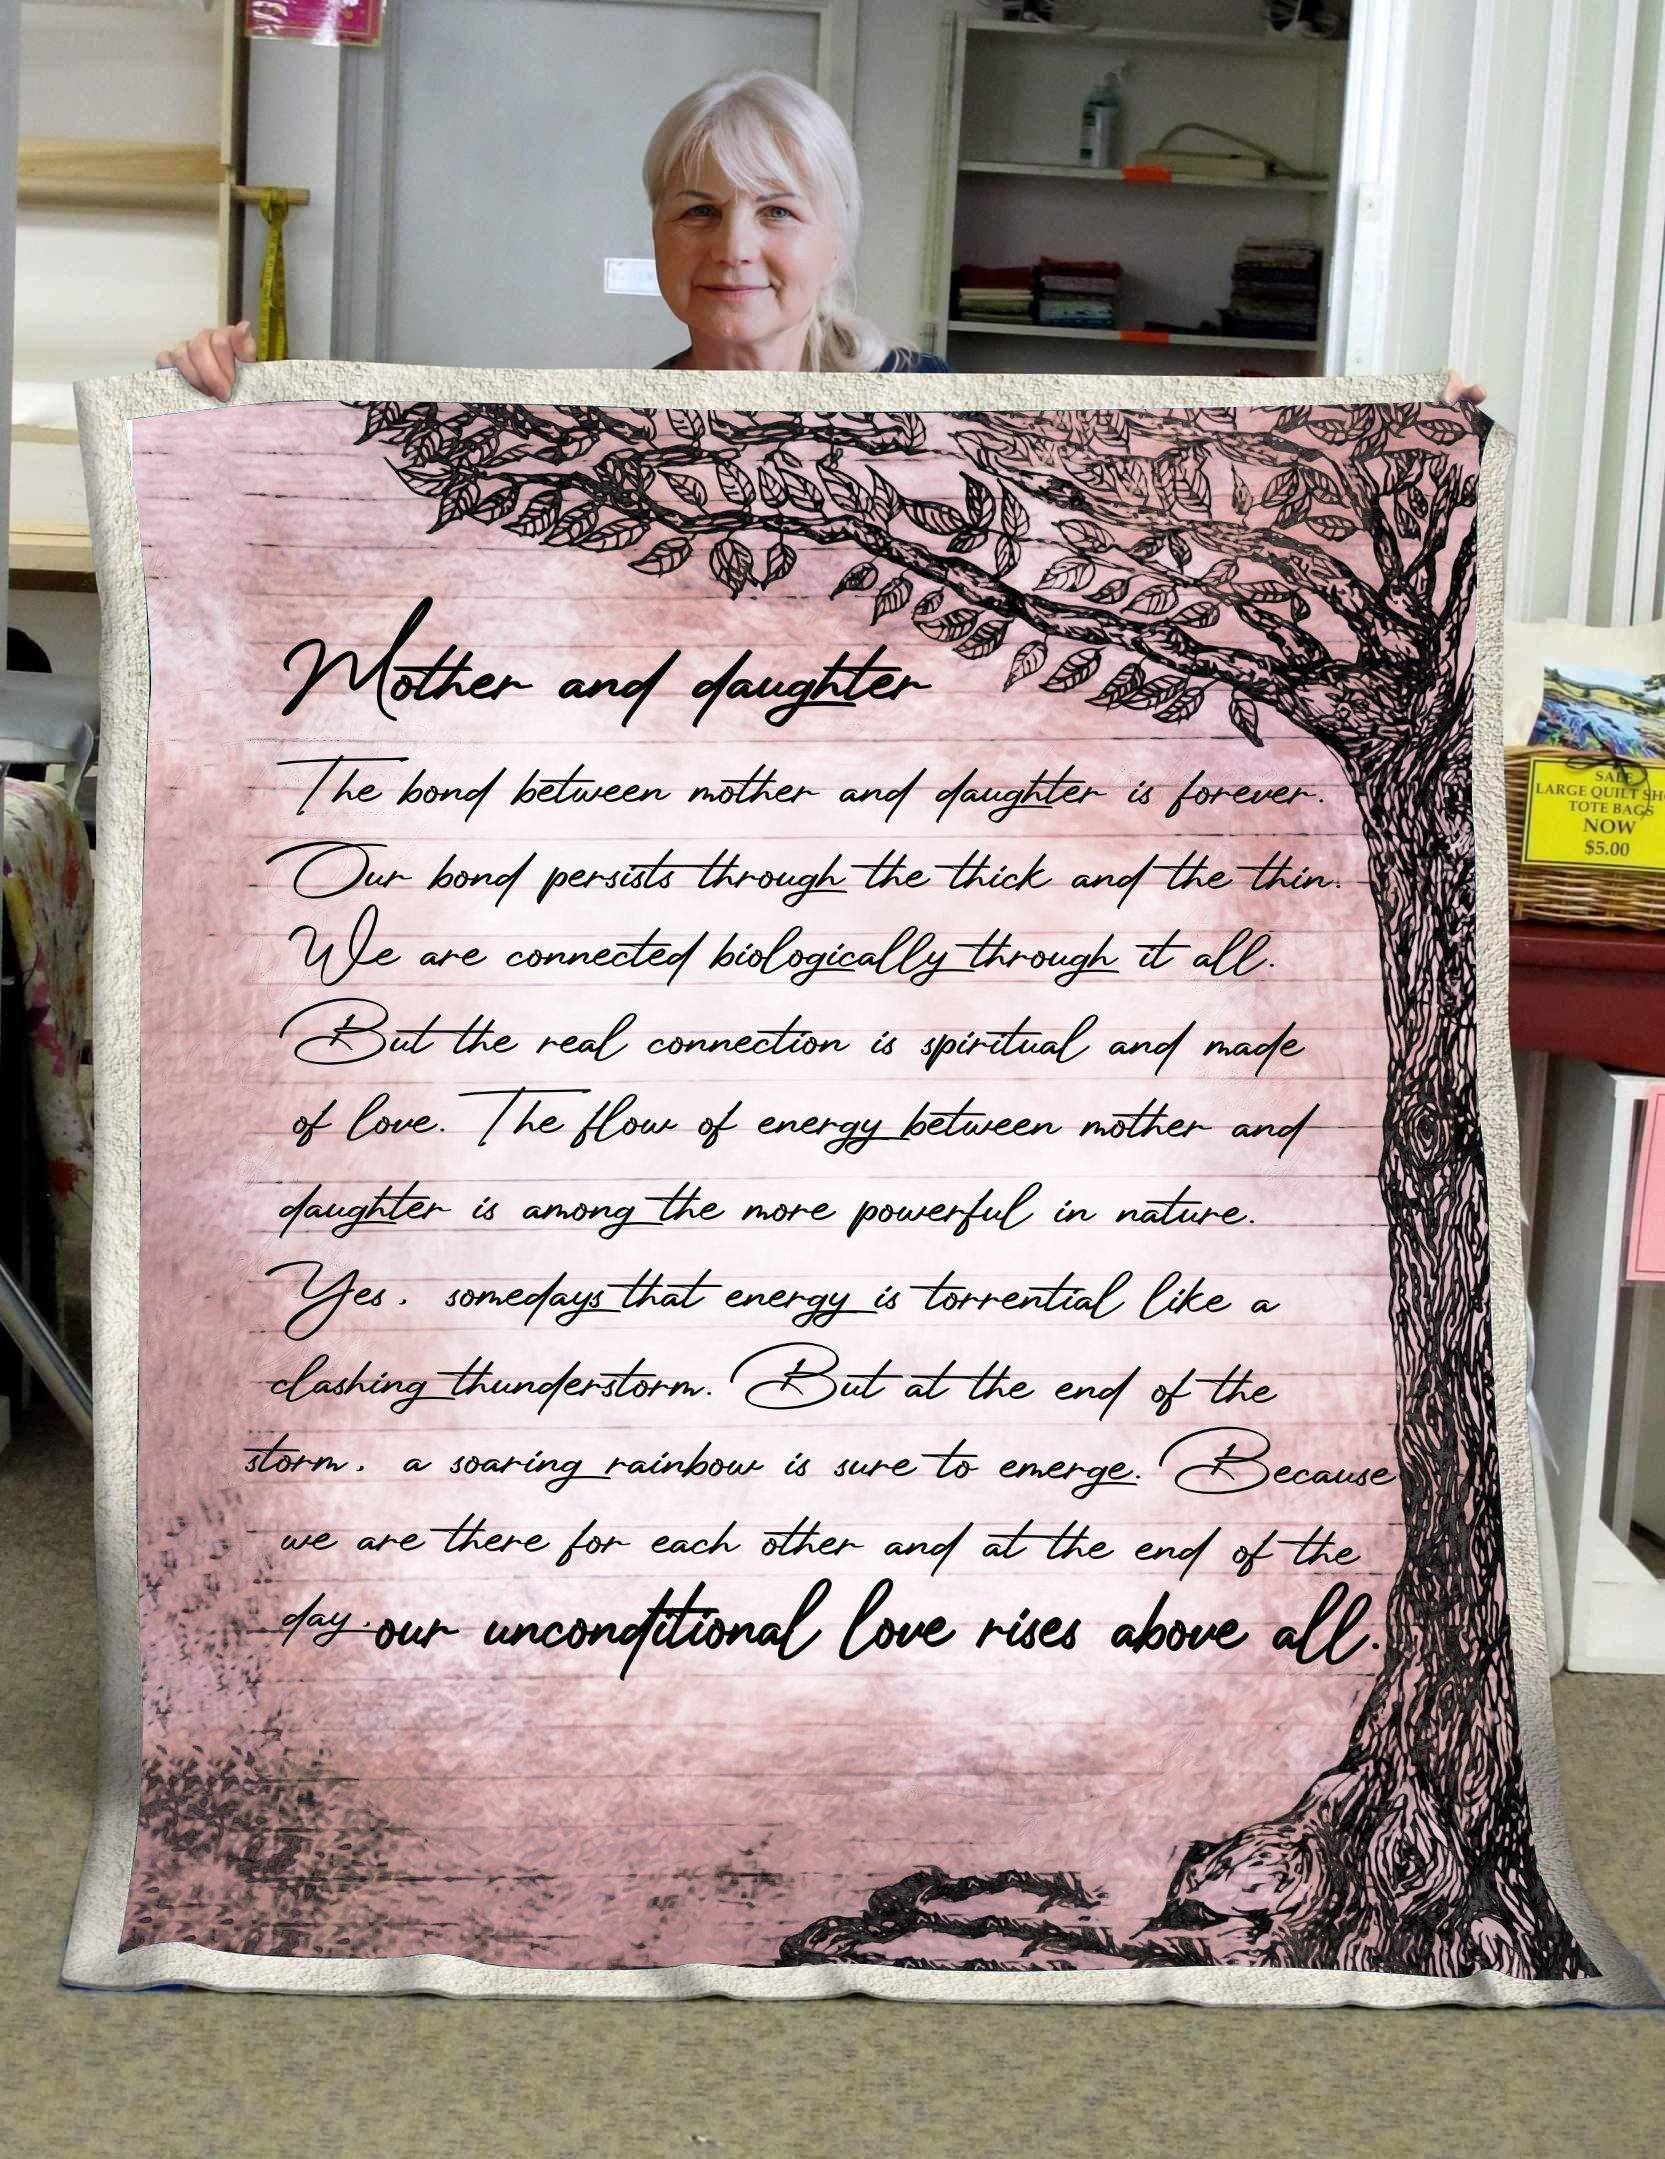 Mother and daughter
The bond between mother and daughter is forever.
Our bond persists through the thick and the thin.
We are connected biologically through it all.
But the real connection is spiritual and made
of love. The flow of energy between mother and
daughter is among the more powerful in nature.
Yes, somedays that energy is torrential like a
clashing thunderstorm. But at the end of the
storm, a soaring rainbow is sure to emerge. Because
we are there for each other and at the end of the
day, our unconditional love rises above all.
SALE
LARGE QUILT SH
TOTE BAGS
NOW
$5.00